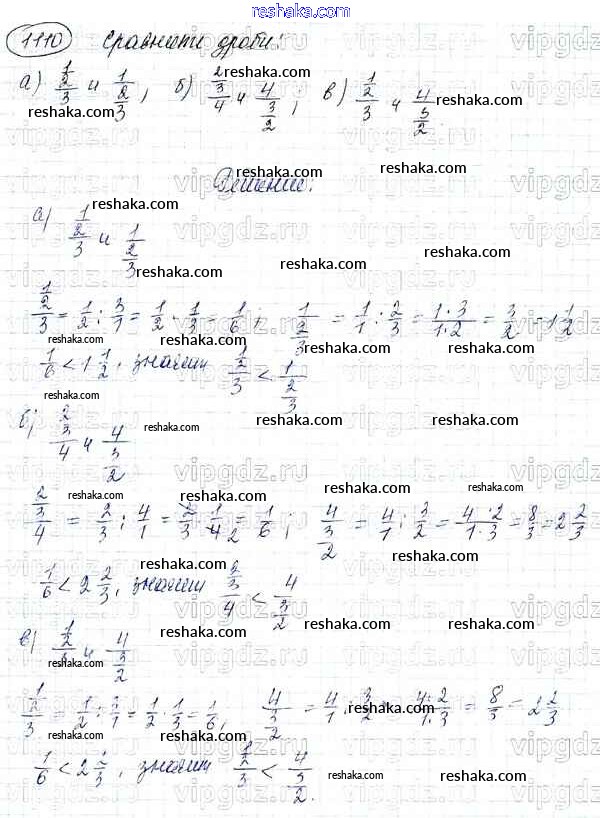 reshaka.com
1110 Сравнить дроби:
а) 1/2/3 и 1/2/3, б) 2/3/4 и 4/3/2, в) 1/2/3 и 4/3/2.
Решение.
а) 1/2/3 и 1/2/3
1/2/3 = 1/2 : 3/1 = 1/2 · 1/3 = 1/6; 1/2/3 = 1/1 : 2/3 = 1·3/1·2 = 3/2 = 1 1/2
1/6 < 1 1/2, значит 1/2/3 < 1/2/3
б) 2/3/4 и 4/3/2
2/3/4 = 2/3 : 4/1 = 2/3 · 1/4 2 = 1/6; 4/3/2 = 4/1 : 3/2 = 4·2/1·3 = 8/3 = 2 2/3
1/6 < 2 2/3, значит 2/3/4 < 4/3/2
в) 1/2/3 и 4/3/2
1/2/3 = 1/2 : 3/1 = 1/2 · 1/3 = 1/6, 4/3/2 = 4/1 : 3/2 = 4·2/1·3 = 8/3 = 2 2/3
1/6 < 2 2/3, значит 1/2/3 < 4/3/2.